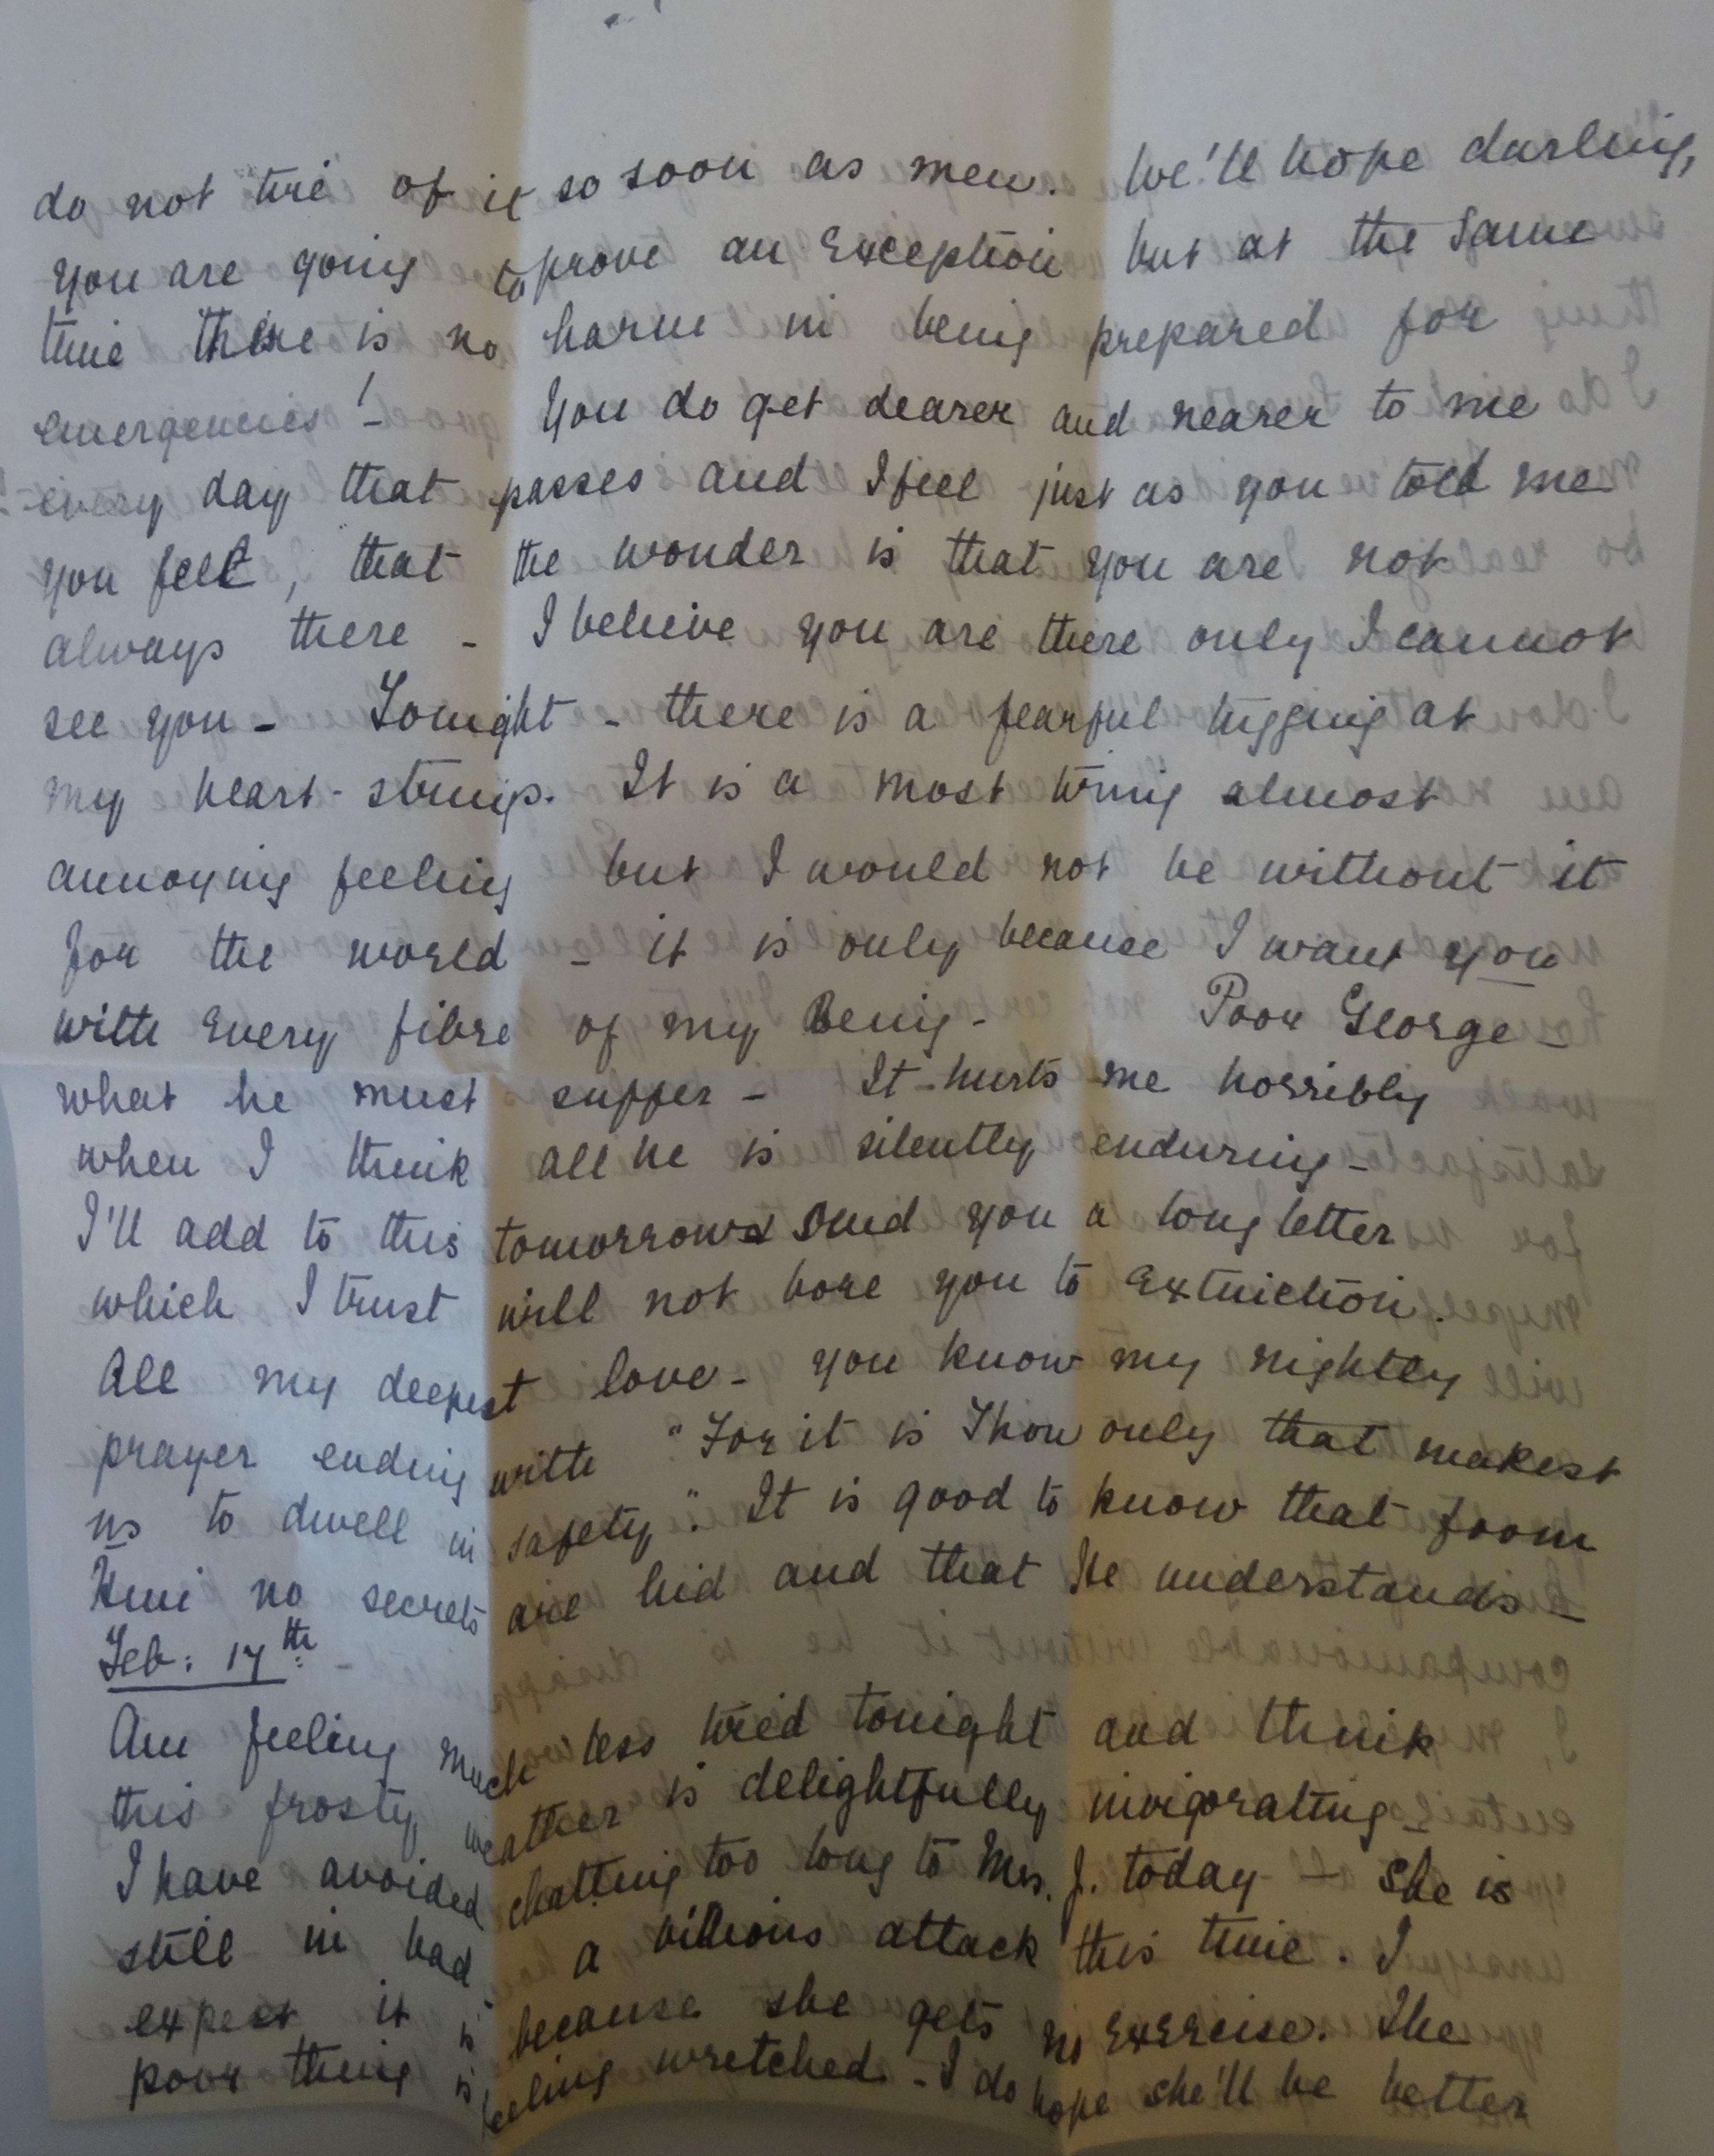 do not tire of it so soon as men. We'll hope darling,
you are going to prove an Exception but at the same
time there is no harm in being prepared for
emergencies! - You do get dearer and nearer to me
every day that passes and I feel just as you told me
you felt, that the wonder is that you are not
always there - I believe you are there only I cannot
see you - Tonight - there is a fearful tugging at
my heart-strings. It is a most tiring almost
annoying feeling but I would not be without it
for the world - it is only because I want you
with Every fibre of my Being - Poor George -
what he must suffer - It hurts me horribly
when I think all he is silently enduring -
I'll add to this tomorrow & send you a long letter
which I trust will not bore you to Extinction.
All my deepest love - you know my nightly
prayer ending with "For it is Thou only that makest
us to dwell in safety". It is good to know that from
Him no secrets are hid and that He understands -
Feb: 17th
Am feeling much less tired tonight and think
this frosty weather is delightfully invigorating -
I have avoided chatting too long to Mrs. J. today - She is
still in bad a billious attack this time. I
expect it is because she gets no Exercise. The
poor thing is feeling wretched - I do hope she'll be better